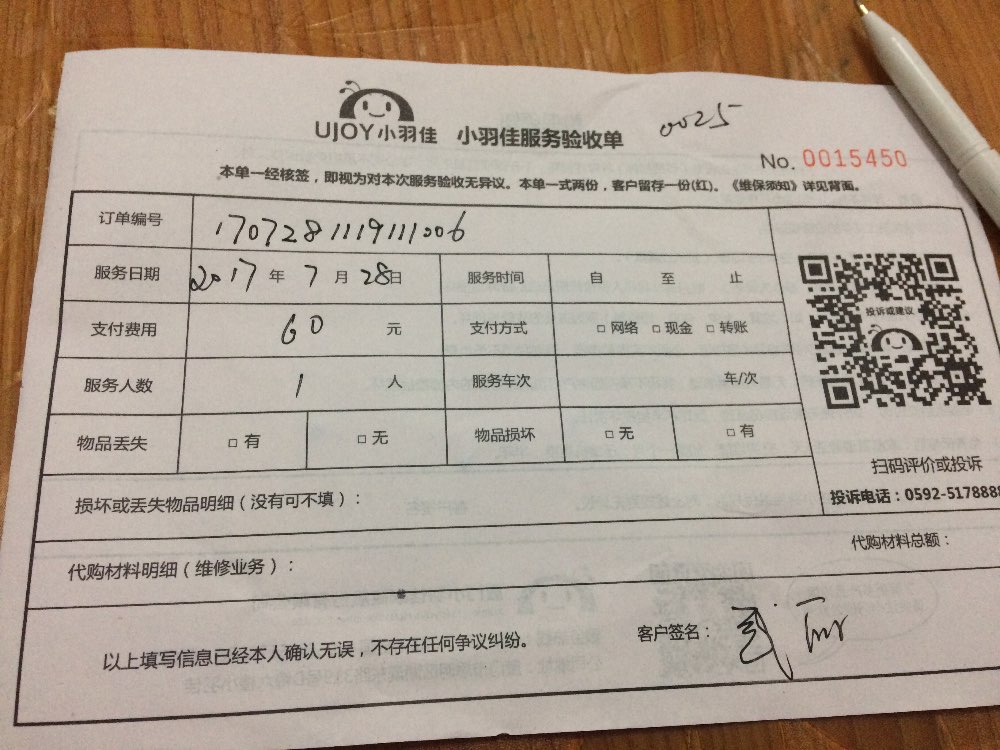 UJOY小羽佳 小羽佳服务验收单
0025
No. 0015450
本单一经核签，即视为对本次服务验收无异议。本单一式两份，客户留存一份(红)。《维保须知》详见背面。
订单编号 170728111911006
服务日期 2017 年 7 月 28 日 服务时间 自 至 止
投诉或建议
支付费用 60 元 支付方式 □ 网络 □ 现金 □ 转账
服务人数 1 人 服务车次 车/次
物品丢失 □ 有 □ 无 物品损坏 □ 无 □ 有
扫码评价或投诉
投诉电话：0592-5178888
损坏或丢失物品明细（没有可不填）：
代购材料明细（维修业务）： 代购材料总额：
以上填写信息已经本人确认无误，不存在任何争议纠纷。 客户签名：